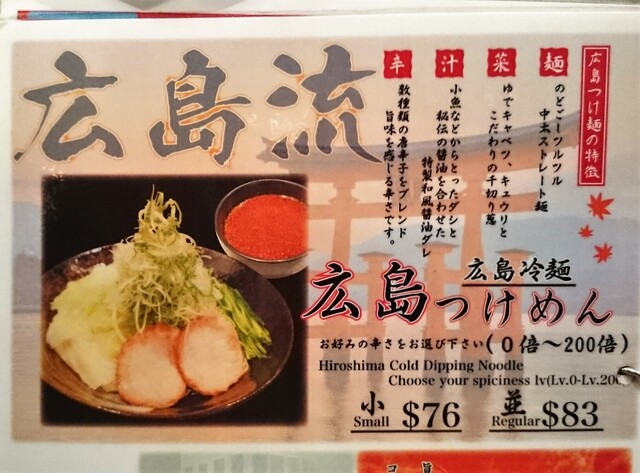 広島流
広島つけ麺の特徴
麺
のどごーツルツル
中太ストレート麺
菜
ゆでキャベツ、キュウリと
こだわりの千切り葱
汁
小魚などからとったダシと
秘伝の醤油を合わせた
特製和風醤油ダレ
辛
数種類の唐辛子をブレンド
旨味を感じる辛さです。
広島冷麺
広島つけめん
お好みの辛さをお選び下さい(0倍〜200倍)
Hiroshima Cold Dipping Noodle
Choose your spiciness lv(Lv.0-Lv.200
小 Small $76
並 Regular $83